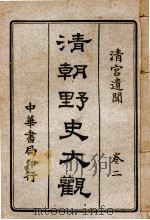 清宮遺聞 卷二
清朝野史大觀
中華書局印行